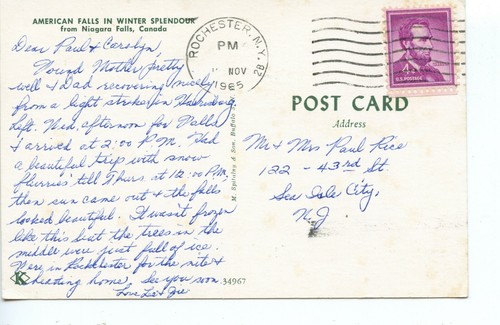 AMERICAN FALLS IN WINTER SPLENDOUR
from Niagara Falls, Canada
Dear Paul & Carolyn,
Found Mother pretty
well & Dad recovering nicely
from a light stroke in
Left Wed. afternoon for Falls
& arrived at 2:00 P.M. Had
a beautiful trip with snow
flurries till Thurs at 12:00 P.M.
then sun came out & the falls
looked beautiful. It wasn't frozen
like this but the trees in the
middle were just full of ice.
Were in Rochester for the nite &
heading home. See you soon
Love
K
34967
M. Spitalny & Son, Buffalo
ROCHESTER, N.Y.
PM
NOV
1965
4¢
U.S. POSTAGE
POST CARD
Address
Mr & Mrs Paul Rice
122 - 43rd St.
Sea Isle City,
N.J.